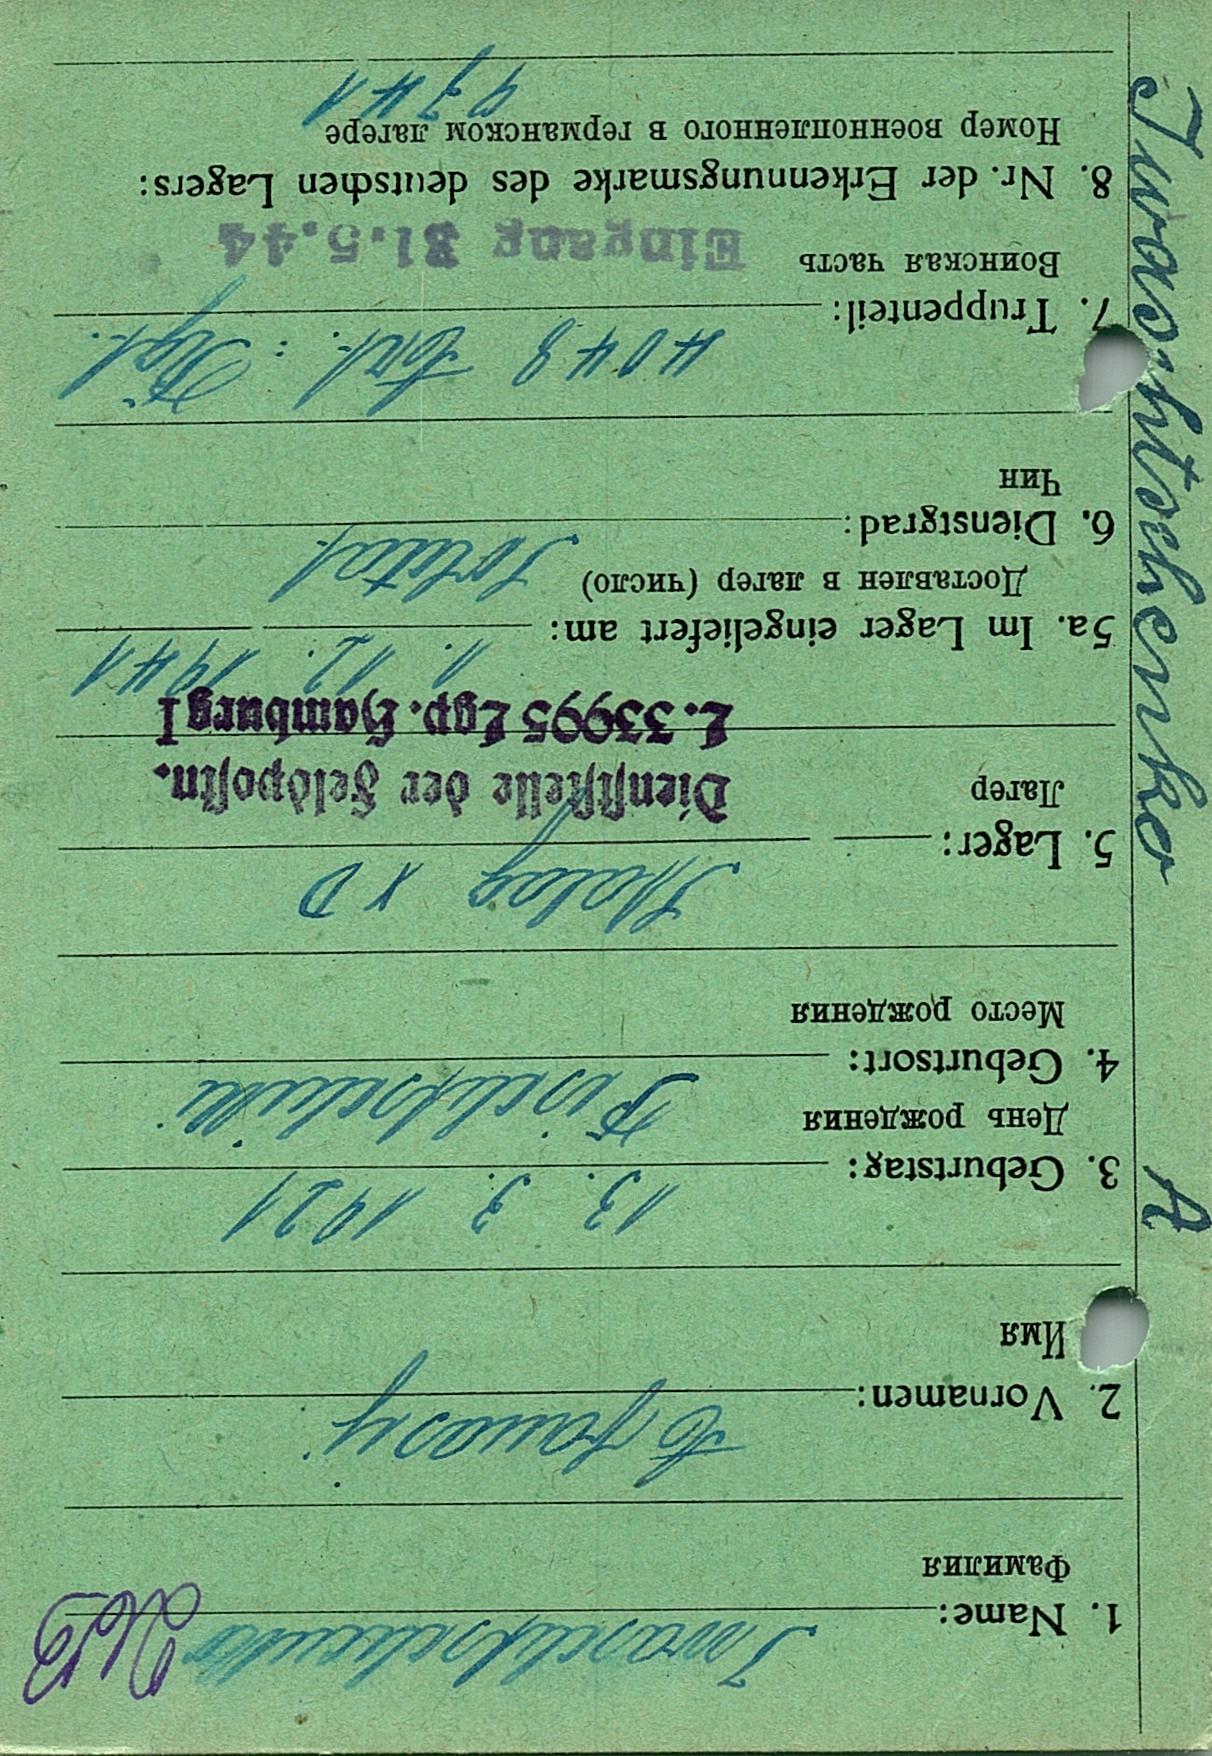 Iwaschtschenko
1. Name:
Фамилия
Afanasij
2. Vornamen:
Имя
13. 3. 1921
3. Geburtstag:
День рождения
4. Geburtsort:
Место рождения
Stalag X D
5. Lager:
Лагер
Dienststelle der Feldpostn.
L.33995 Lgp. Hamburg I
1. 12. 1941
5a. Im Lager eingeliefert am:
Доставлен в лагер (число)
Soldat
6. Dienstgrad:
Чин
4048
7. Truppenteil:
Воинская часть
Eingang 31.5.44
8. Nr. der Erkennungsmarke des deutschen Lagers:
Номер военнопленного в германском лагере
Iwaschtschenko A